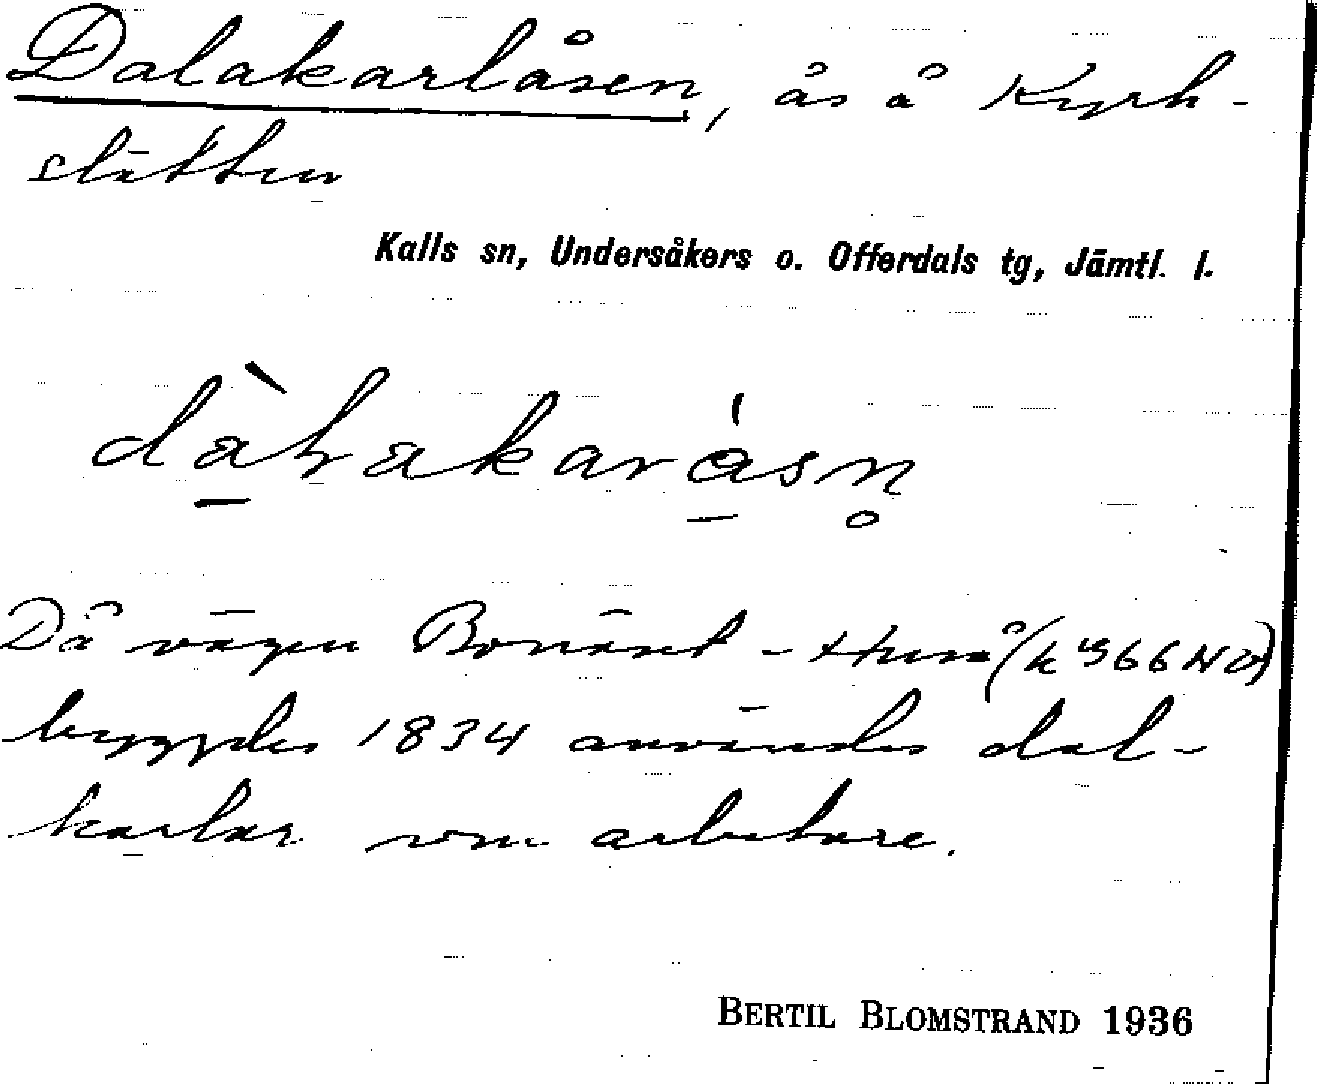 Dalakarlåsen, ås å Kyrk-
slätten
Kalls sn, Undersåkers o. Offerdals tg, Jämtl. l.
Då vägen Bonäset - Huså (k
byggdes 1834 användes dal-
karlar som arbetare.
BERTIL BLOMSTRAND 1936